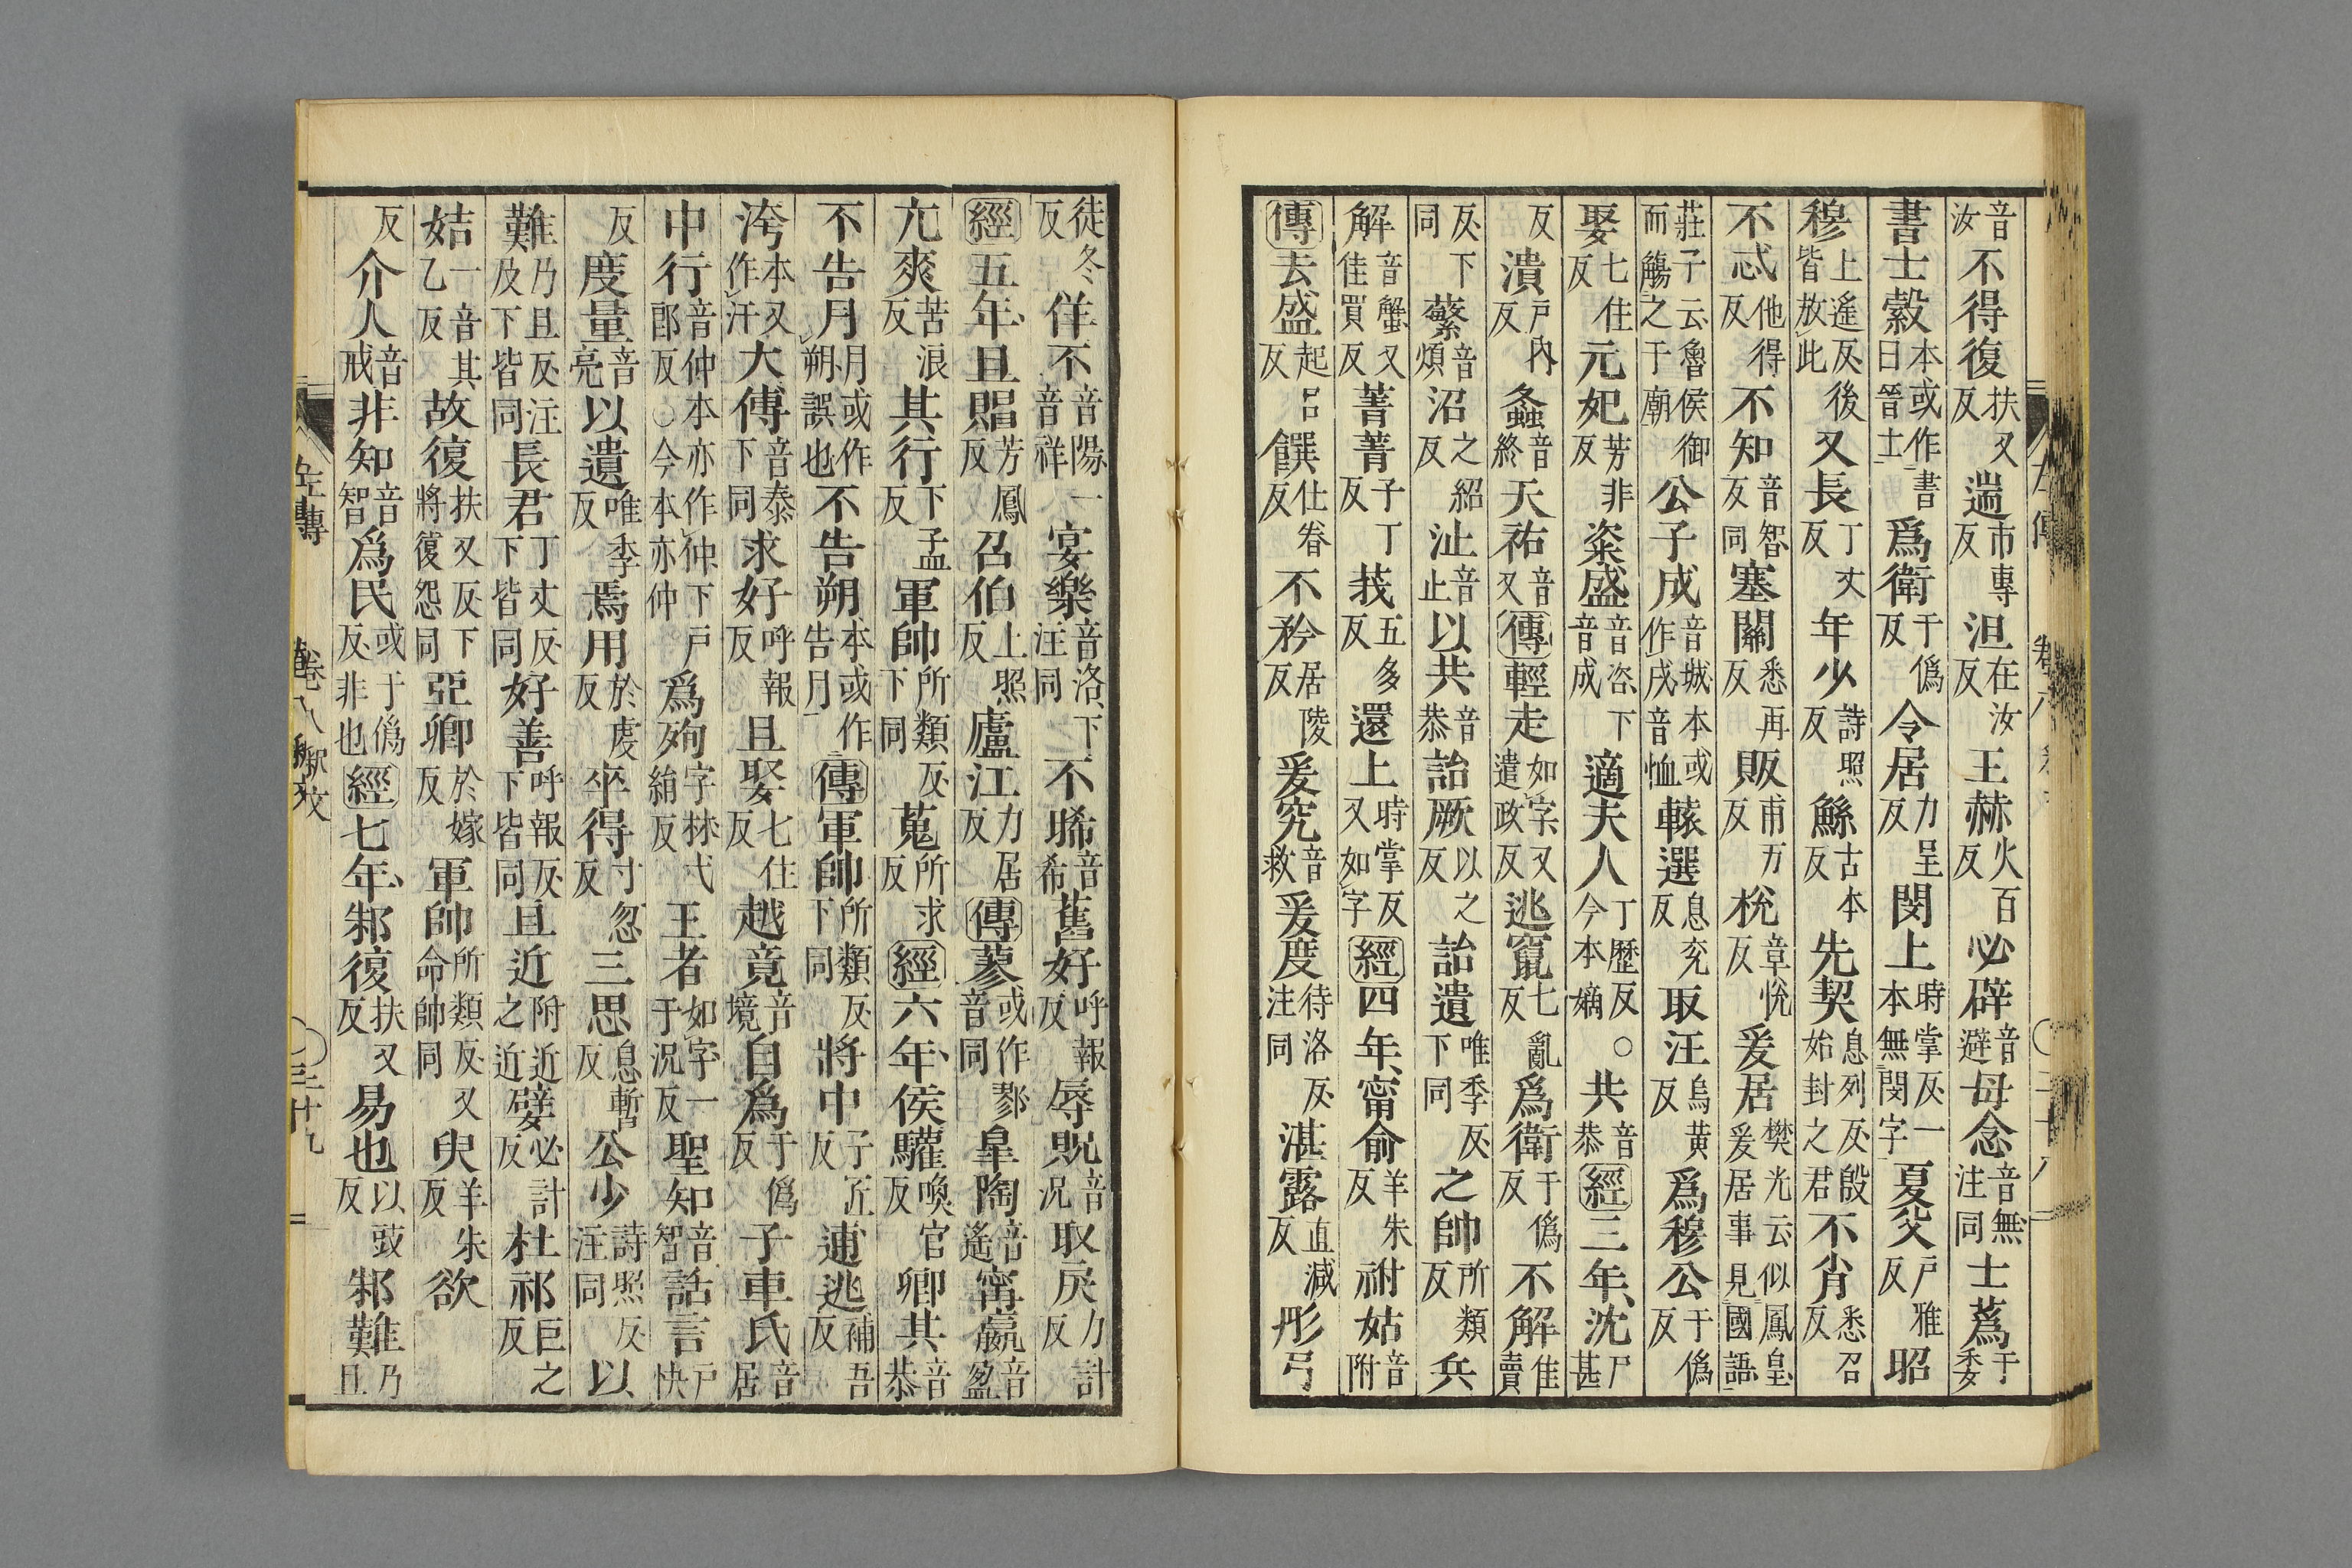 音汝不得復扶又反遄市專反沮在汝反王赫火百反必辟音避毋念音無注同士蒍于委
書士縠本或作書曰晉士爲衛于僞反令居力呈反閔上時掌反一本無閔字夏父戶雅反昭
穆上遙反後皆放此又長丁丈反年少詩照反鯀古本反先契息列反殷始封之君不肖悉召反
不忒他得反不知音智反同塞關悉再反販甫万反梲章悅反爰居樊光云似鳳皇爰居事見國語
莊子云魯侯御而觴之于廟公子成音城本或作戌音恤轅選息兖反取汪烏黄反爲穆公于僞反
娶七住反元妃芳非反粢盛音咨下音成適夫人丁歷反今本嫡○共音恭經三年沈尸甚
反潰戶內反螽音終天祐音又傳輕走如字又遣政反逃竄七亂反爲衛于僞反不解佳賣
反下同蘩音煩沼之紹反沚音止以共音恭詒厥以之反詒遺唯季反下同之帥所類反兵
解音蟹又佳買反菁菁子丁反莪五多反還上時掌反又如字經四年甯俞羊朱反祔姑音附
傳去盛起呂反饌仕眷反不矜居陵反爰究音救爰度待洛反注同湛露直減反彤弓
徒冬反佯不音陽一音祥宴樂音洛下注同不晞音希舊好呼報反辱貺音況取戾力計反
經五年且賵芳鳳反召伯上照反廬江力居反傳蓼或作鄝音同皋陶音遙甯嬴音盈
亢爽苦浪反其行下孟反軍帥所類反下同蒐所求反經六年侯驩喚官反卿共音恭
不告月月或作朔誤也不告朔本或作告月傳軍帥所類反下同將中子匠反逋逃補吾反
洿本又作汙大傅音泰下同求好呼報反且娶七住反越竟音境自爲于僞反子車氏音居
中行音仲本亦作仲下戶郎反○今本亦仲爲殉字林弋絹反王者如字一于況反聖知音智話言戶快
反度量音亮以遺唯季反焉用於虔反卒得寸忽反三思息暫反公少詩照反注同以
難乃旦反注及下皆同長君丁丈反下皆同好善呼報反下皆同且近附近之近嬖必計反杜祁巨之反
姞一音其乙反故復扶又反下將復怨同亞卿於嫁反軍帥所類反又命帥同臾羊朱反欲
反介人音戒非知音智爲民或于僞反非也經七年邾復扶又反易也以豉反邾難乃旦
左傳 卷八釈文 三十九